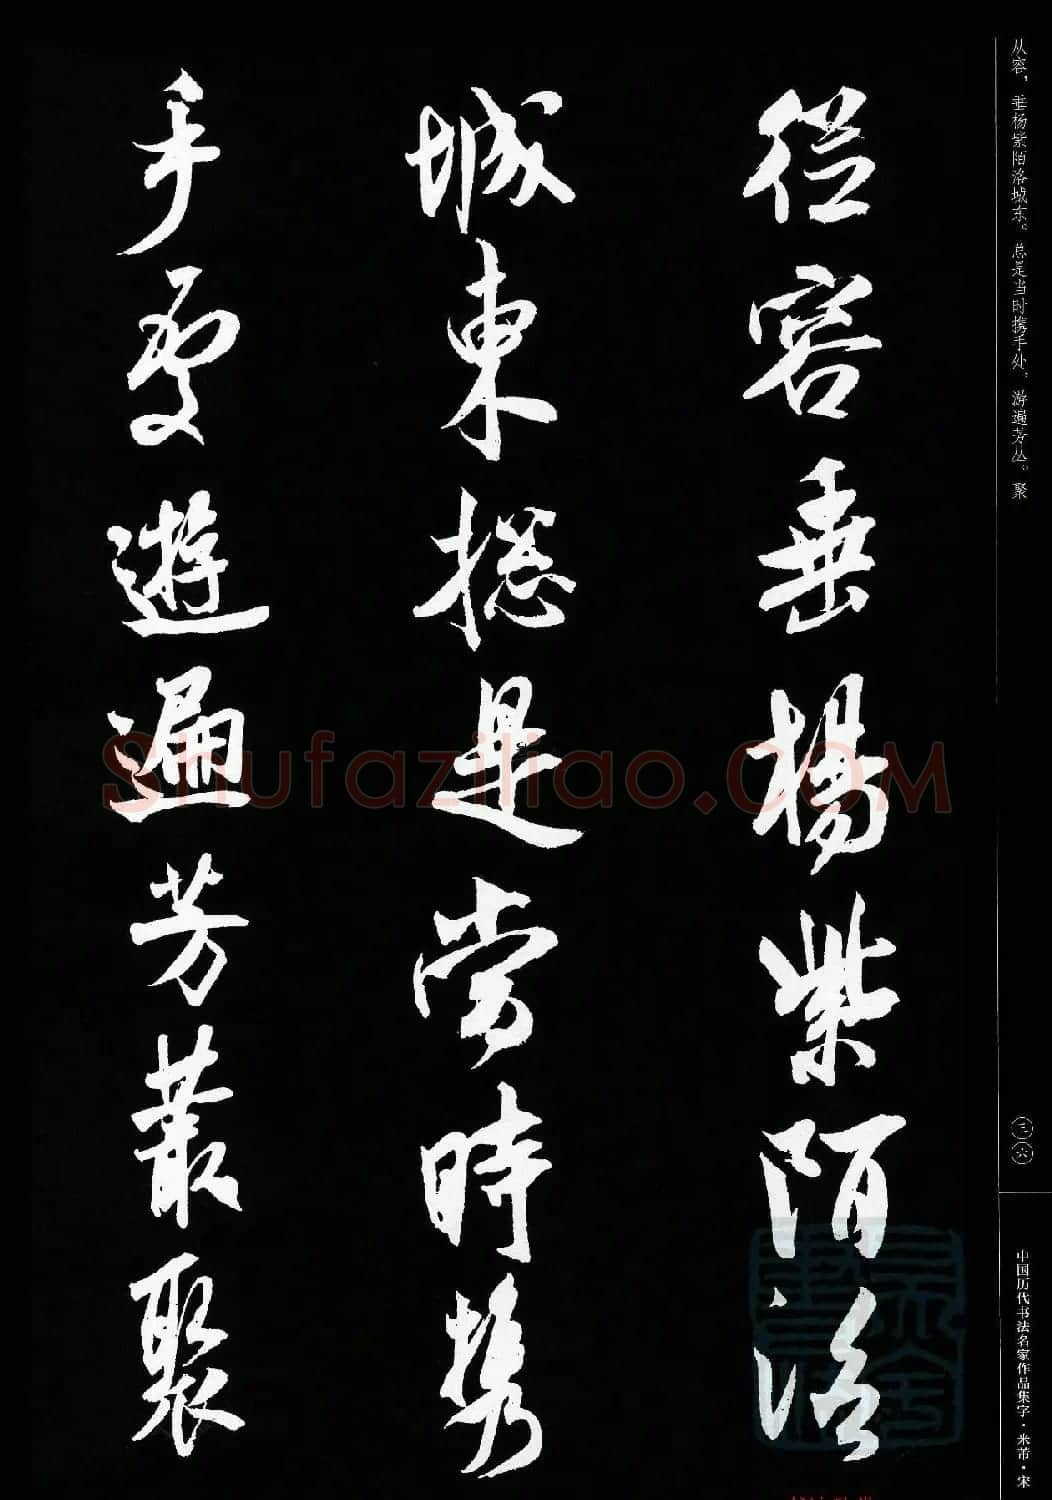 从容，垂杨紫陌洛城东。总是当时携手处，游遍芳丛。聚
三六
中国历代书法名家作品集字·米芾·宋
從容垂楊紫陌洛
城東揔是當時携
手處遊遍芳叢聚
Shufaziliao.com